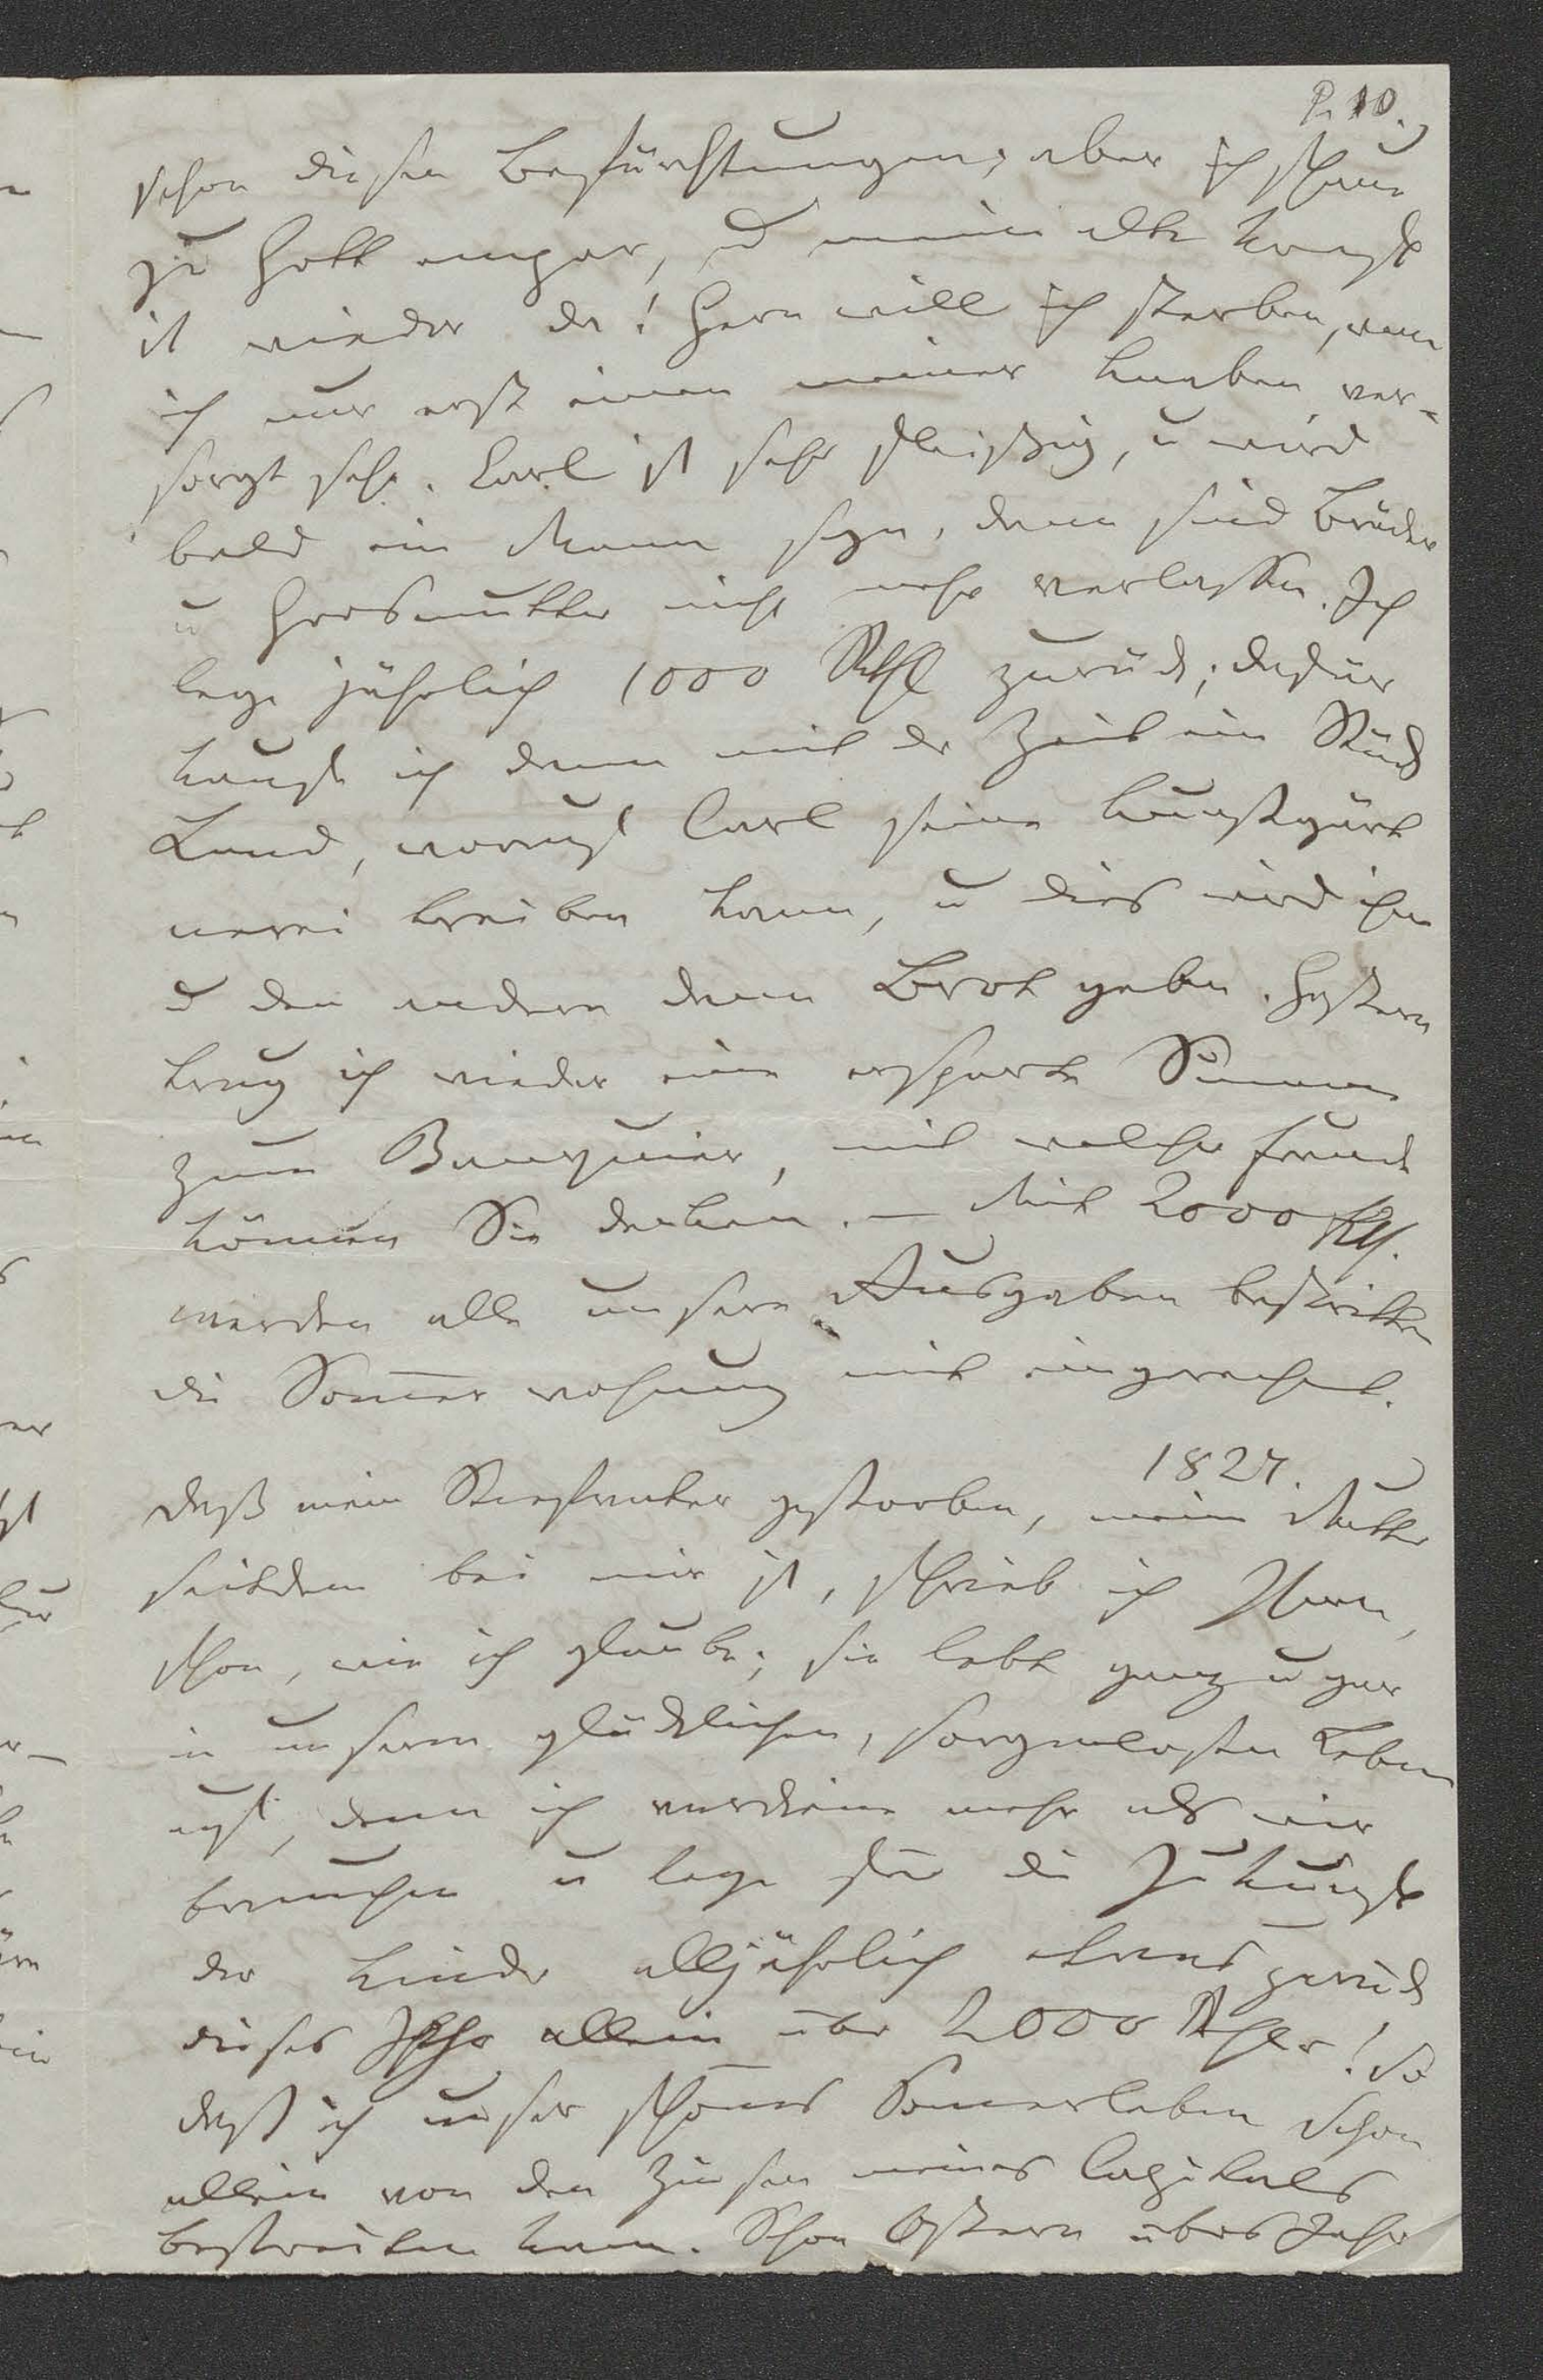 P. 10.
schon diesen Befürchtungen; aber ich schaue
zu Gott empor, u meine alte Kraft
ist wieder da! Gern will ich sterben, wenn
ich nur erst einen meiner Knaben ver-
sorgt sehe. Carl ist sehr fleißig, u wird
bald ein Mann seyn, dann sind Brüder
u Grosmutter nicht mehr verlassen. Ich
lege jährlich 1000 Rthl zurück; dafür
kaufe ich dann mit der Zeit ein Stück
Land, worauf Carl seine Kunstgärt
nerei treiben kann, u dies wird ihm
u den andern dann Brot geben. Gestern
trug ich wieder eine ersparte Summe
zum Banquier, mit welcher Freude
können Sie denken. — Mit 2000 Rth.
werden alle unsere Ausgaben bestritten
die Somerwohnung mit eingerechnet.
1827.
Daß mein Stiefvater gestorben, meine Mutter
seitdem bei mir ist, schrieb ich Ihnen
schon, wie ich glaube; sie lebt ganz u gar
in unserm glücklichen, sorgenlosen Leben
auf, denn ich verdiene mehr als wir
brauchen u lege für die Zukunft
der Kinder alljährlich etwas zurück
dieses Jahr allein über 2000 Rthlr! So
daß ich unser schönes Somerleben schon
allein von den Zinsen meines Capitals
bestreiten kann. Schon Ostern übers Jahr